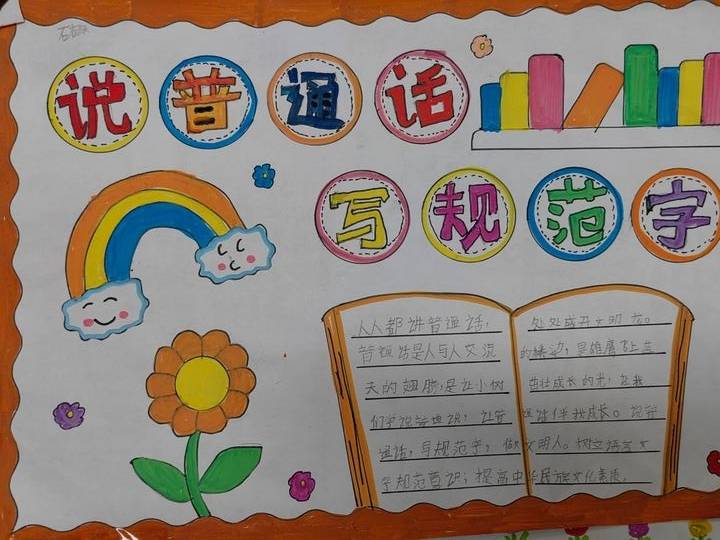 说普通话
写规范字
人人都讲普通话，处处盛开文明花。
普通话是人与人交流的缘边，是雄鹰飞上蓝
天的翅膀，是让小树茁壮成长的
们学说普通话，让普通话伴我成长。说普
通话，写规范字，做文明人。树立语言文
字规范意识，提高中华民族文化素质。